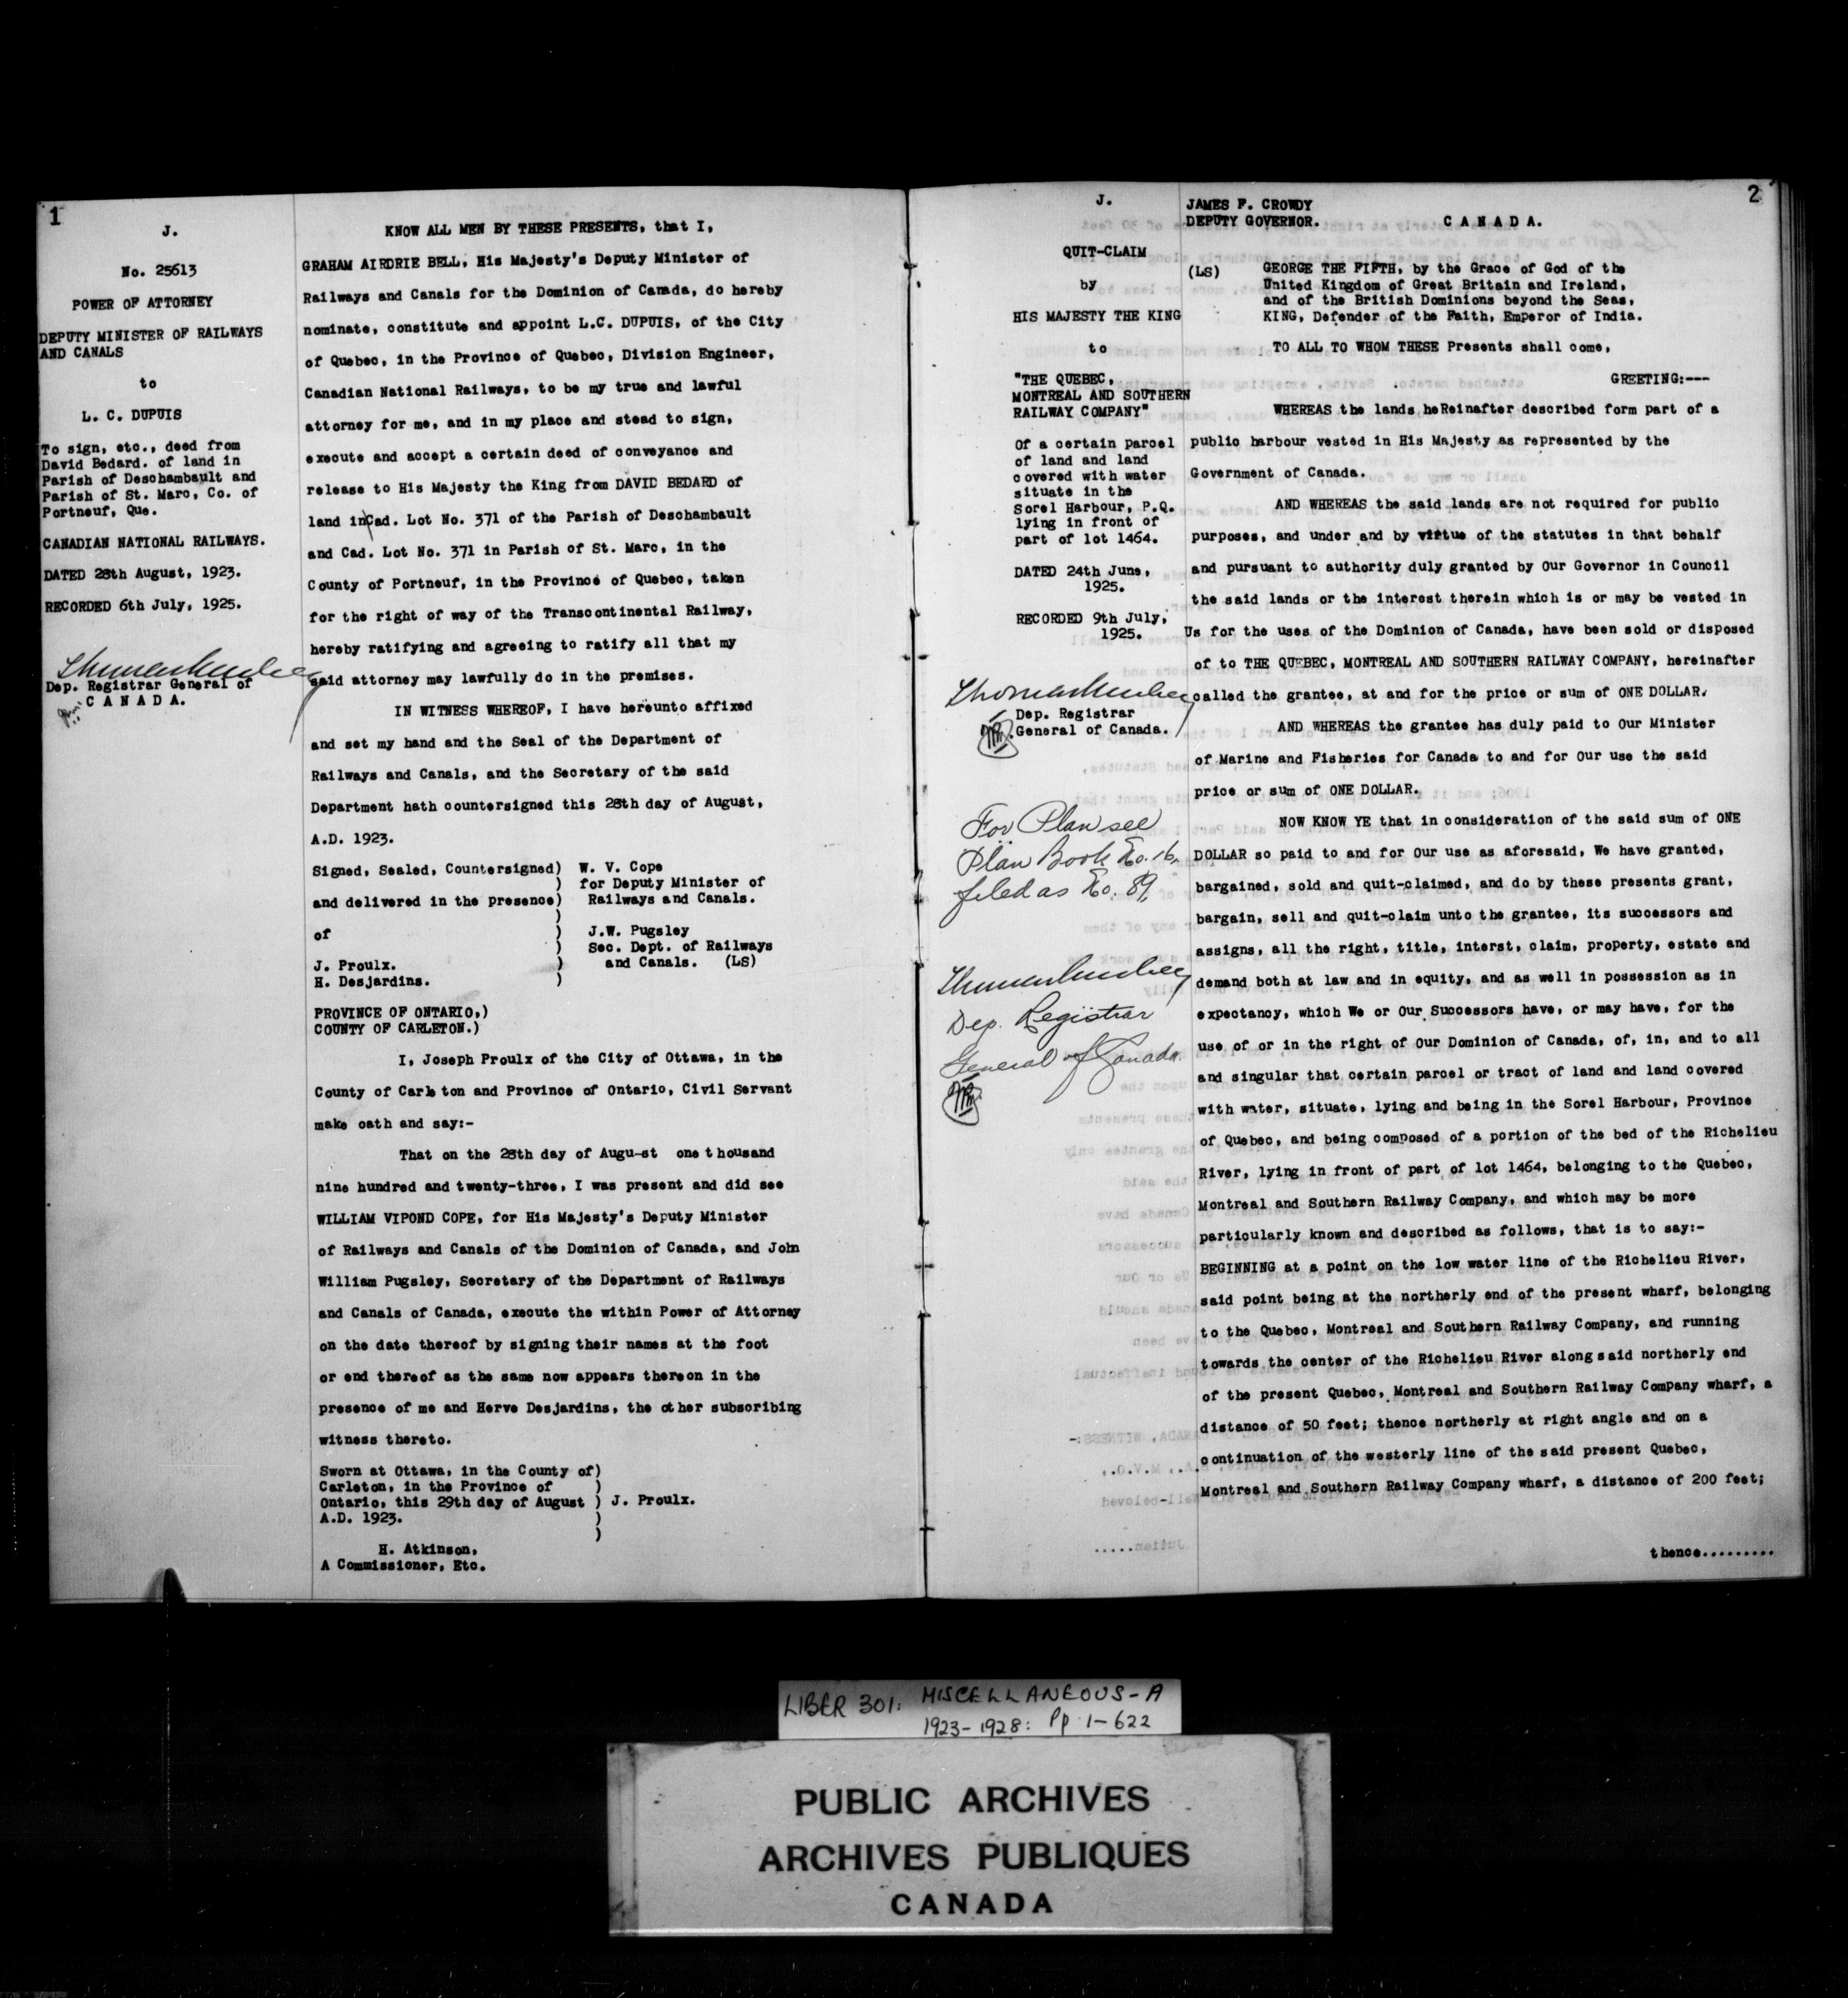 1
J.
No. 25613
POWER OF ATTORNEY
DEPUTY MINISTER OF RAILWAYS
AND CANALS
to
L. C. DUPUIS
To sign, etc., deed from
David Bedard. of land in
Parish of Deschambault and
Parish of St. Marc, Co. of
Portneuf, Que.
CANADIAN NATIONAL RAILWAYS.
DATED 28th August, 1923.
RECORDED 6th July, 1925.
Dep. Registrar General of
C A N A D A.
KNOW ALL MEN BY THESE PRESENTS, that I,
GRAHAM AIRDRIE BELL, His Majesty's Deputy Minister of
Railways and Canals for the Dominion of Canada, do hereby
nominate, constitute and appoint L.C. DUPUIS, of the City
of Quebec, in the Province of Quebec, Division Engineer,
Canadian National Railways, to be my true and lawful
attorney for me, and in my place and stead to sign,
execute and accept a certain deed of conveyance and
release to His Majesty the King from DAVID BEDARD of
land in Cad. Lot No. 371 of the Parish of Deschambault
and Cad. Lot No. 371 in Parish of St. Marc, in the
County of Portneuf, in the Province of Quebec, taken
for the right of way of the Transcontinental Railway,
hereby ratifying and agreeing to ratify all that my
said attorney may lawfully do in the premises.
IN WITNESS WHEREOF, I have hereunto affixed
and set my hand and the Seal of the Department of
Railways and Canals, and the Secretary of the said
Department hath countersigned this 28th day of August,
A.D. 1923.
Signed, Sealed, Countersigned) W. V. Cope
) for Deputy Minister of
and delivered in the presence) Railways and Canals.
)
of ) J.W. Pugsley
) Sec. Dept. of Railways
J. Proulx. ) and Canals. (LS)
H. Desjardins. )
PROVINCE OF ONTARIO,)
COUNTY OF CARLETON.)
I, Joseph Proulx of the City of Ottawa, in the
County of Carleton and Province of Ontario, Civil Servant
make oath and say:-
That on the 28th day of Augu-st one thousand
nine hundred and twenty-three, I was present and did see
WILLIAM VIPOND COPE, for His Majesty's Deputy Minister
of Railways and Canals of the Dominion of Canada, and John
William Pugsley, Secretary of the Department of Railways
and Canals of Canada, execute the within Power of Attorney
on the date thereof by signing their names at the foot
or end thereof as the same now appears thereon in the
presence of me and Herve Desjardins, the other subscribing
witness thereto.
Sworn at Ottawa, in the County of)
Carleton, in the Province of )
Ontario, this 29th day of August ) J. Proulx.
A.D. 1923. )
)
H. Atkinson,
A Commissioner, Etc.
2
J.
QUIT-CLAIM
by
HIS MAJESTY THE KING
to
"THE QUEBEC,
MONTREAL AND SOUTHERN
RAILWAY COMPANY"
Of a certain parcel
of land and land
covered with water
situate in the
Sorel Harbour, P.Q.
lying in front of
part of lot 1464.
DATED 24th June,
1925.
RECORDED 9th July,
1925.
Dep. Registrar
General of Canada.
For Plan see
Plan Book No. 16,
filed as No. 89,
Dep. Registrar
General of Canada.
JAMES F. CROWDY
DEPUTY GOVERNOR. C A N A D A.
(LS) GEORGE THE FIFTH, by the Grace of God of the
United Kingdom of Great Britain and Ireland,
and of the British Dominions beyond the Seas,
KING, Defender of the Faith, Emperor of India.
TO ALL TO WHOM THESE Presents shall come,
GREETING:---
WHEREAS the lands heReinafter described form part of a
public harbour vested in His Majesty as represented by the
Government of Canada.
AND WHEREAS the said lands are not required for public
purposes, and under and by virtue of the statutes in that behalf
and pursuant to authority duly granted by Our Governor in Council
the said lands or the interest therein which is or may be vested in
Us for the uses of the Dominion of Canada, have been sold or disposed
of to THE QUEBEC, MONTREAL AND SOUTHERN RAILWAY COMPANY, hereinafter
called the grantee, at and for the price or sum of ONE DOLLAR.
AND WHEREAS the grantee has duly paid to Our Minister
of Marine and Fisheries for Canada to and for Our use the said
price or sum of ONE DOLLAR.
NOW KNOW YE that in consideration of the said sum of ONE
DOLLAR so paid to and for Our use as aforesaid, We have granted,
bargained, sold and quit-claimed, and do by these presents grant,
bargain, sell and quit-claim unto the grantee, its successors and
assigns, all the right, title, interst, claim, property, estate and
demand both at law and in equity, and as well in possession as in
expectancy, which We or Our Successors have, or may have, for the
use of or in the right of Our Dominion of Canada, of, in, and to all
and singular that certain parcel or tract of land and land covered
with water, situate, lying and being in the Sorel Harbour, Province
of Quebec, and being composed of a portion of the bed of the Richelieu
River, lying in front of part of lot 1464, belonging to the Quebec,
Montreal and Southern Railway Company, and which may be more
particularly known and described as follows, that is to say:-
BEGINNING at a point on the low water line of the Richelieu River,
said point being at the northerly end of the present wharf, belonging
to the Quebec, Montreal and Southern Railway Company, and running
towards the center of the Richelieu River along said northerly end
of the present Quebec, Montreal and Southern Railway Company wharf, a
distance of 50 feet; thence northerly at right angle and on a
continuation of the westerly line of the said present Quebec,
Montreal and Southern Railway Company wharf, a distance of 200 feet;
thence.........
LIBER 301: MISCELLANEOUS-A
1923-1928: Pp 1-622
PUBLIC ARCHIVES
ARCHIVES PUBLIQUES
CANADA